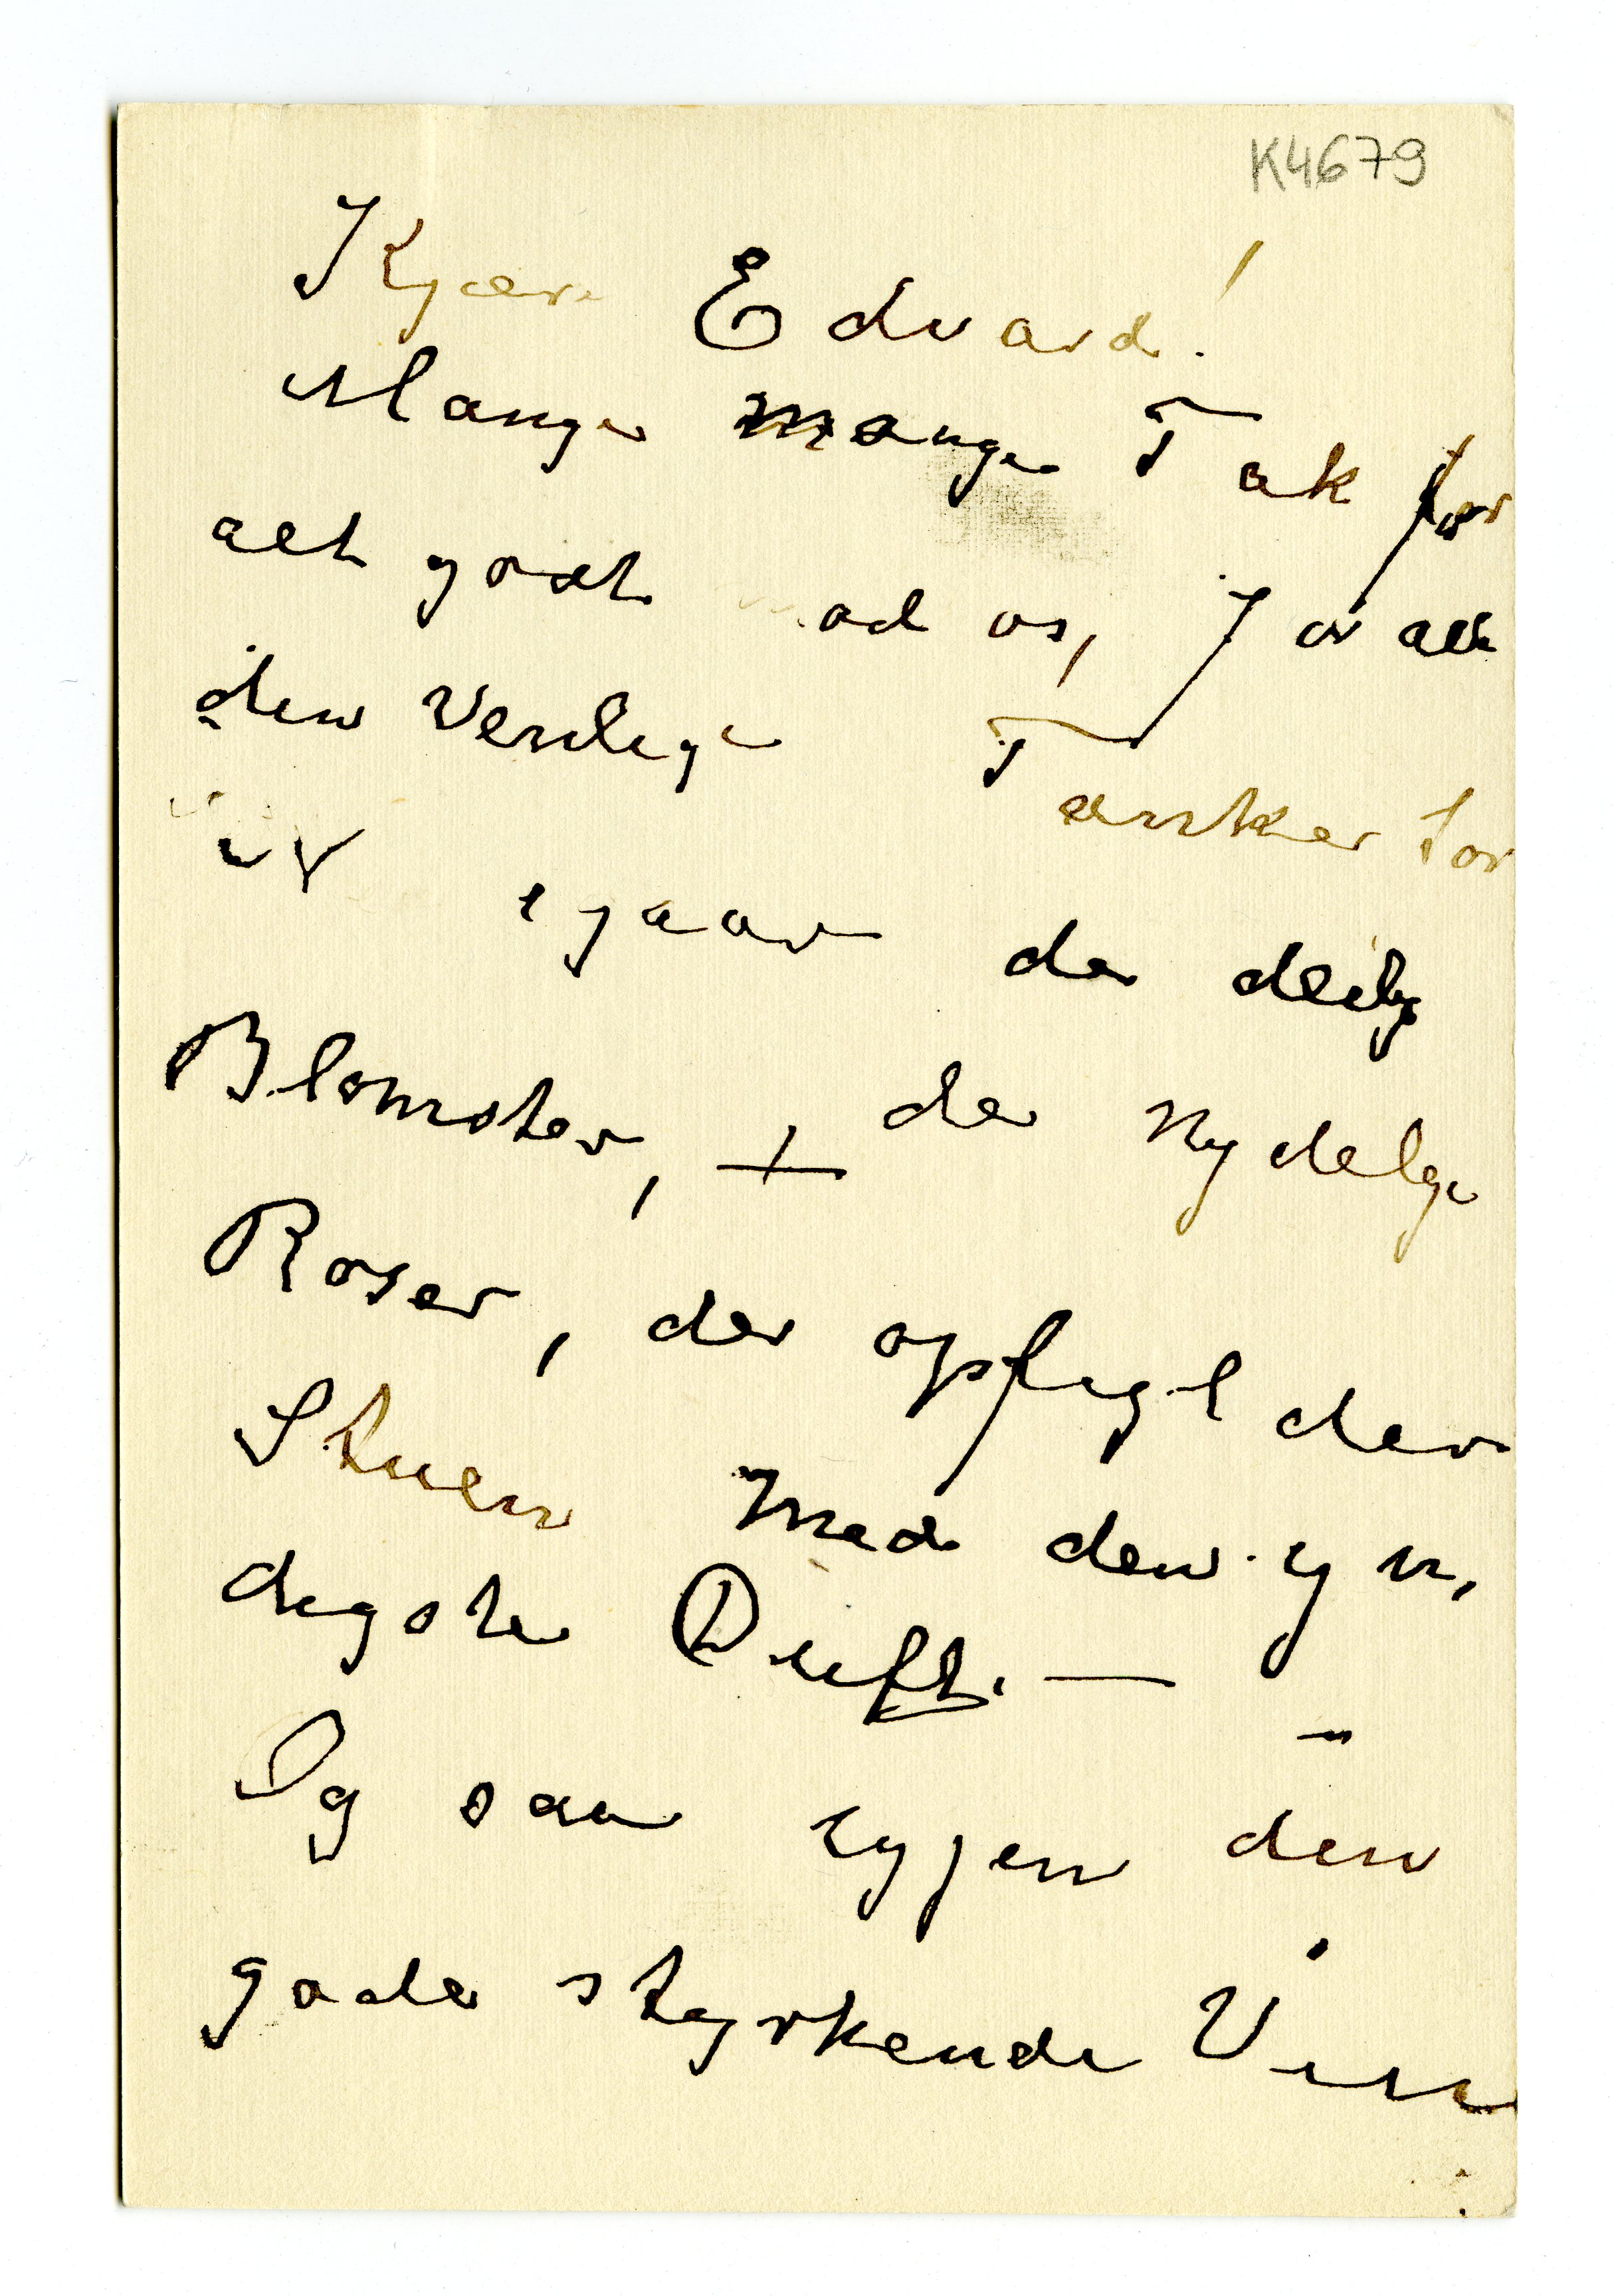 K4679
Kjære Edvard!
Mange mange Tak for
alt godt mod os, for alle
dine Venlige Tanker for
igaar de deilige
Blomster, + de nydelige
Roser, der opfylder
Stuen med den yn,
digste Duft. —
Og saa igjen den
gode styrkende Vin